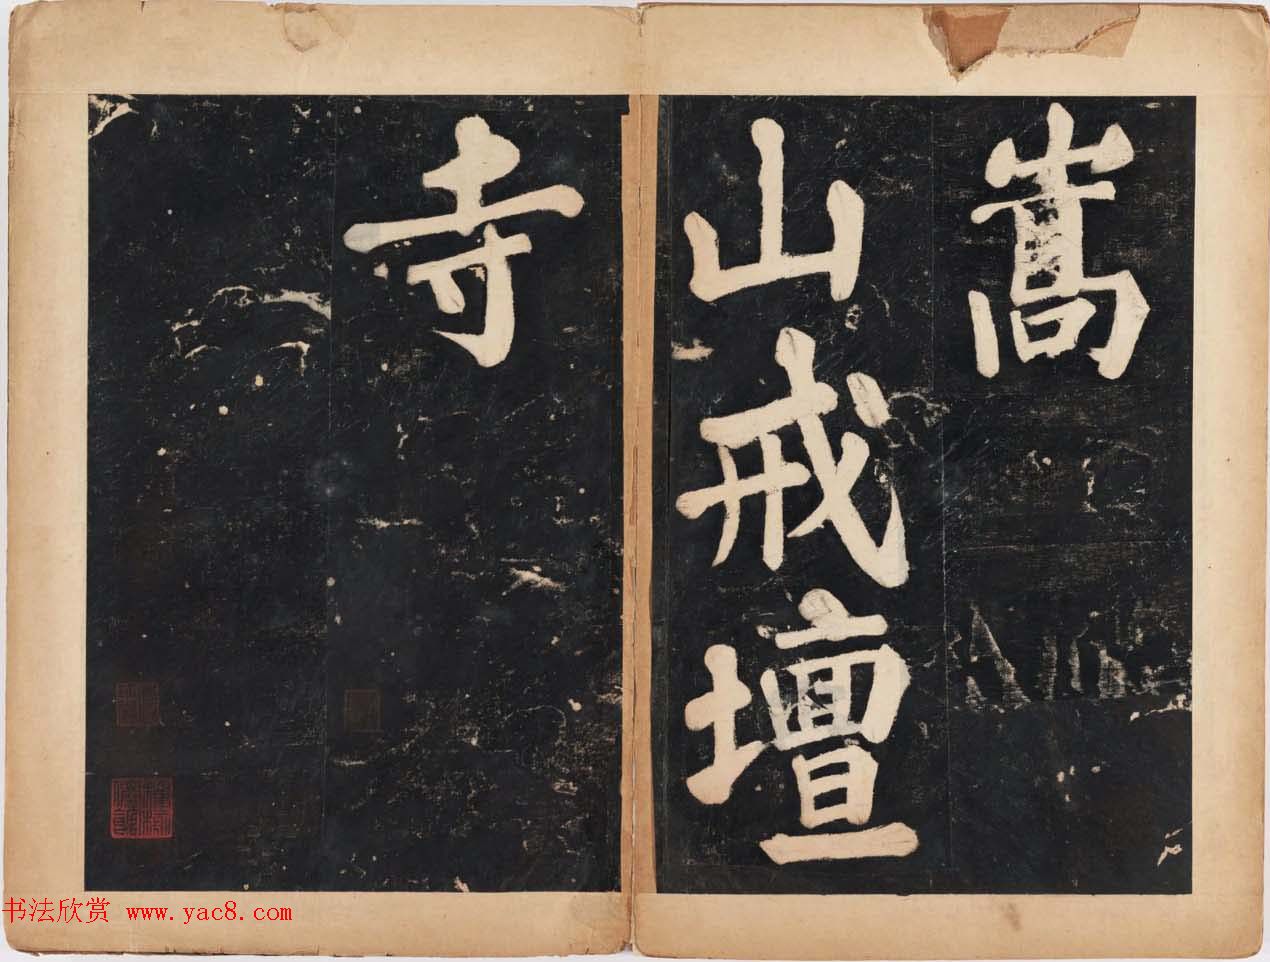 嵩
山戒壇
寺
书法欣赏 www.yac8.com